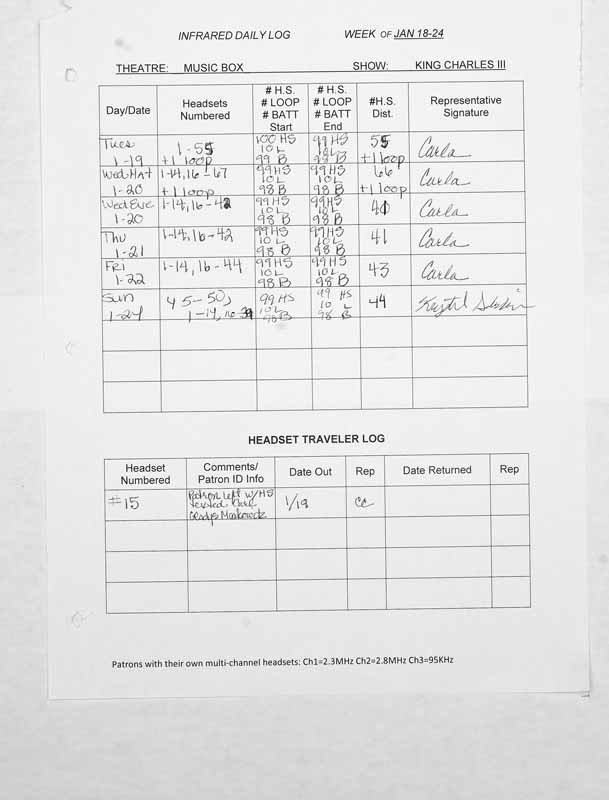 INFRARED DAILY LOG WEEK OF JAN 18-24
THEATRE: MUSIC BOX SHOW: KING CHARLES III
Day/Date Headsets Numbered # H.S. # LOOP # BATT Start # H.S. # LOOP # BATT End #H.S. Dist. Representative Signature
Tues 1-19 1-55 +1 loop 100 HS 10 L 99 B 99 HS 10L 98 B 55 +1 loop Carla
Wed Mat 1-20 1-14, 16-67 +1 loop 99 HS 10 L 98 B 99 HS 10 L 98 B 66 +1 loop Carla
Wed Eve 1-20 1-14, 16-42 99 HS 10 L 98 B 99 HS 10 L 98 B Carla
Thu 1-21 1-14, 16-42 99 HS 10 L 98 B 99 HS 10 L 98 B 41 Carla
Fri 1-22 1-14, 16-44 99 HS 10L 98 B 99 HS 10 L 98 B 43 Carla
Sun 1-24 45-50, 1-14, 16 99 HS 10L 98 B 99 HS 10 L 98 B 44
HEADSET TRAVELER LOG
Headset Numbered Comments/ Patron ID Info Date Out Rep Date Returned Rep
#15 Patron left w/HS Gladys 1/19 CC
Patrons with their own multi-channel headsets: Ch1=2.3MHz Ch2=2.8MHz Ch3=95KHz